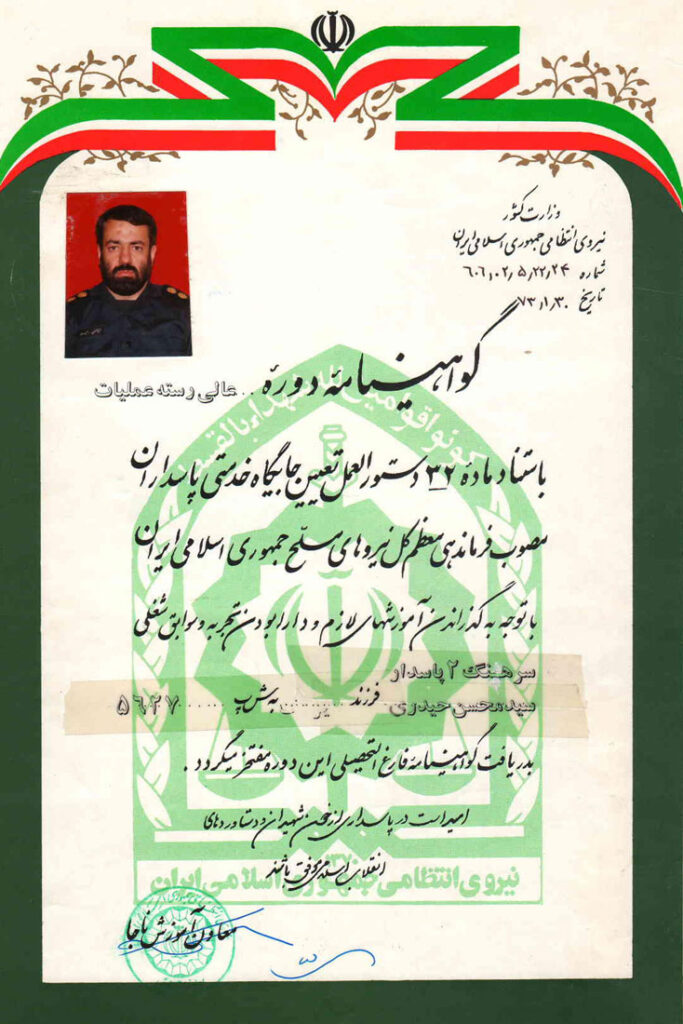 وزارت کشور
نیروی انتظامی جمهوری اسلامی ایران
شماره ۶۰۶٫۰۲٫۵٫۲۲٫۲۴
تاریخ ۷۳٫۱٫۳۰
گواهینامه دوره .. عالی رسته عملیات
کونوا قوامین لله شهداء بالقسط
باستناد ماده ۳۲ دستورالعمل تعیین جایگاه خدمتی پاسداران
مصوب فرماندهی معظم کل نیروهای مسلح جمهوری اسلامی ایران
با توجه به گذراندن آموزشهای لازم و دارا بودن تجربه و سوابق شغلی
سرهنگ ۲ پاسدار
سید محسن حیدری فرزند به ش پ ۵۶۲۷
بدریافت گواهینامه فارغ التحصیلی این دوره مفتخر میگردد .
امید است در پاسداری از خون شهیدان و دستاوردهای
انقلاب اسلامی موفق باشند
۱۳۷۰
نیروی انتظامی جمهوری اسلامی ایران
معاون آموزش ناجا